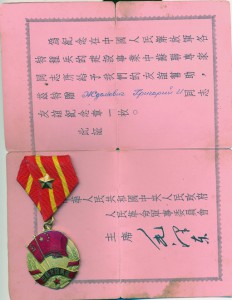 為紀念在中國人民解放軍名
特種兵的建設事業中蘇聯專家
同志所給予我們的友誼幫助，
茲特贈 Журавлев Григорий И 同志
友誼紀念章一枚。
此証
中華人民共和國中央人民政府
人民革命軍事委員會
主席 毛澤東